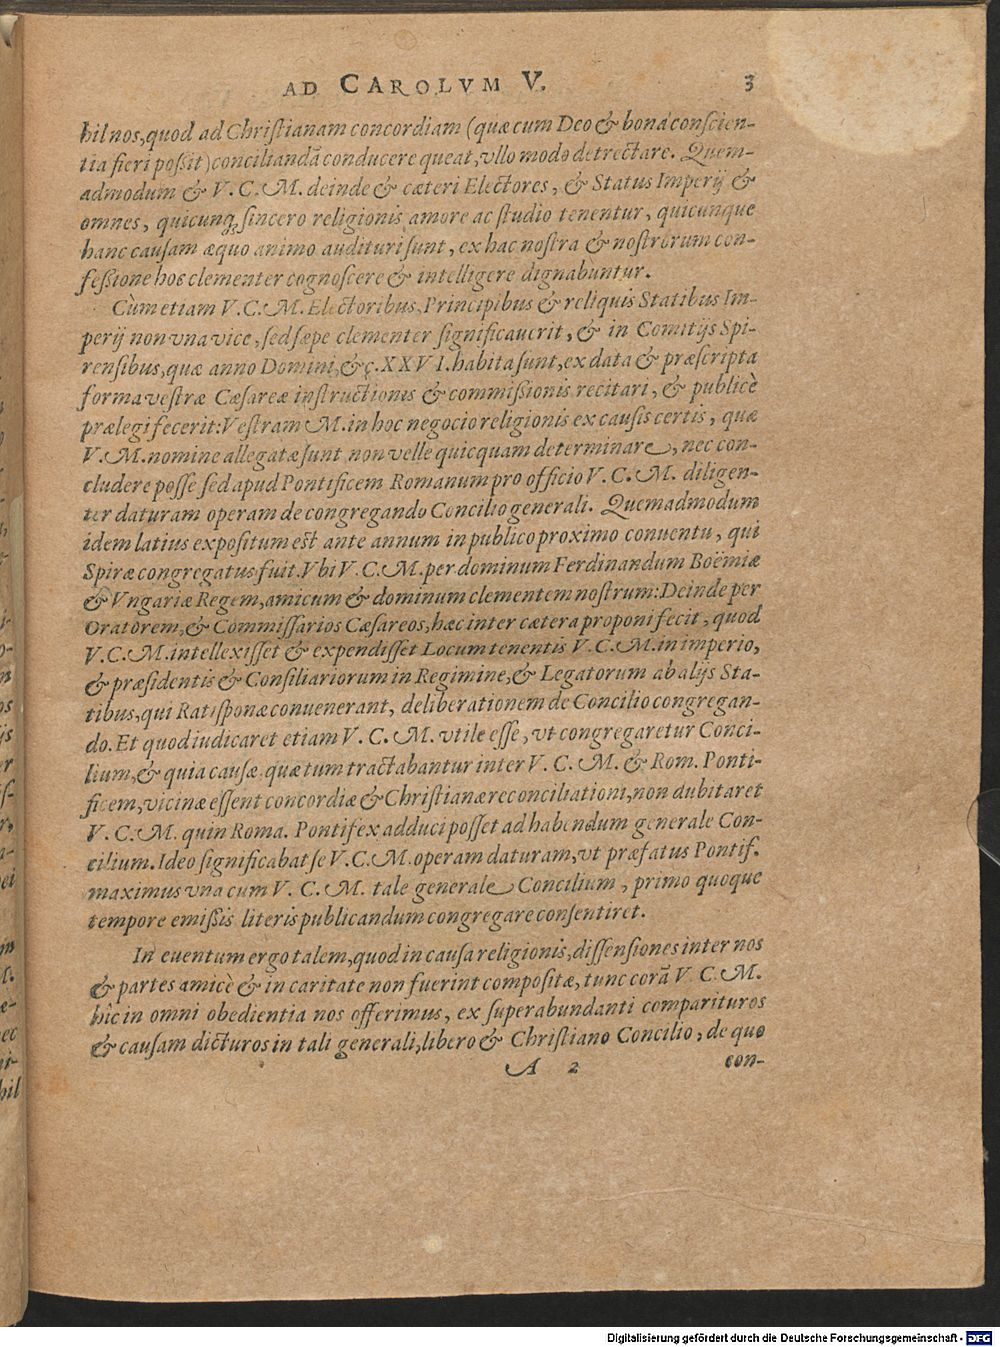 AD CAROLVM V. 3
hil nos, quod ad Christianam concordiam (quæ cum Deo & bona conscien-
tia fieri possit) conciliandã conducere queat, vllo modo detrectare. Quem-
admodum & V. C. M. deinde & cæteri Electores, & Status Imperij &
omnes, quicunq; sincero religionis amore ac studio tenentur, quicunque
hanc causam æquo animo audituri sunt, ex hac nostra & nostrorum con-
fessione hoc clementer cognoscere & intelligere dignabuntur.
Cùm etiam V. C. M. Electoribus, Principibus & reliquis Statibus Im-
perij non vna vice, sed sæpe clementer significauerit, & in Comitijs Spi-
rensibus, quæ anno Domini, &c. XXVI. habita sunt, ex data & præscripta
forma vestræ Cæsareæ instructionis & commissionis recitari, & publicè
prælegi fecerit: Vestram M. in hoc negocio religionis ex causis certis, quæ
V. M. nomine allegatæ sunt non velle quicquam determinare, nec con-
cludere posse sed apud Pontificem Romanum pro officio V. C. M. diligen-
ter daturam operam de congregando Concilio generali. Quemadmodum
idem latius expositum est ante annum in publico proximo conuentu, qui
Spiræ congregatus fuit. Vbi V. C. M. per dominum Ferdinandum Boëmiæ
& Vngariæ Regem, amicum & dominum clementem nostrum: Deinde per
Oratorem, & Commissarios Cæsareos, hæc inter cætera proponi fecit, quod
V. C. M. intellexisset & expendisset Locumtenentis V. C. M. in imperio,
& præsidentis & Consiliariorum in Regimine, & Legatorum ab alijs Sta-
tibus, qui Ratisponæ conuenerant, deliberationem de Concilio congregan-
do. Et quod iudicaret etiam V. C. M. vtile esse, vt congregaretur Conci-
lium, & quia causæ quæ tum tractabantur inter V. C. M. & Rom. Ponti-
ficem, vicinæ essent concordiæ & Christianæ reconciliationi, non dubitaret
V. C. M. quin Roma. Pontifex adduci posset ad habendum generale Con-
cilium. Ideo significabat se V. C. M. operam daturam, vt præfatus Pontif.
maximus vna cum V. C. M. tale generale Concilium, primo quoque
tempore emissis literis publicandum congregare consentiret.
In euentum ergo talem, quod in causa religionis, dissensiones inter nos
& partes amicè & in caritate non fuerint compositæ, tunc corã V. C. M.
hîc in omni obedientia nos offerimus, ex superabundanti comparituros
& causam dicturos in tali generali, libero & Christiano Concilio, de quo
A 2 con-
Digitalisierung gefördert durch die Deutsche Forschungsgemeinschaft - DFG